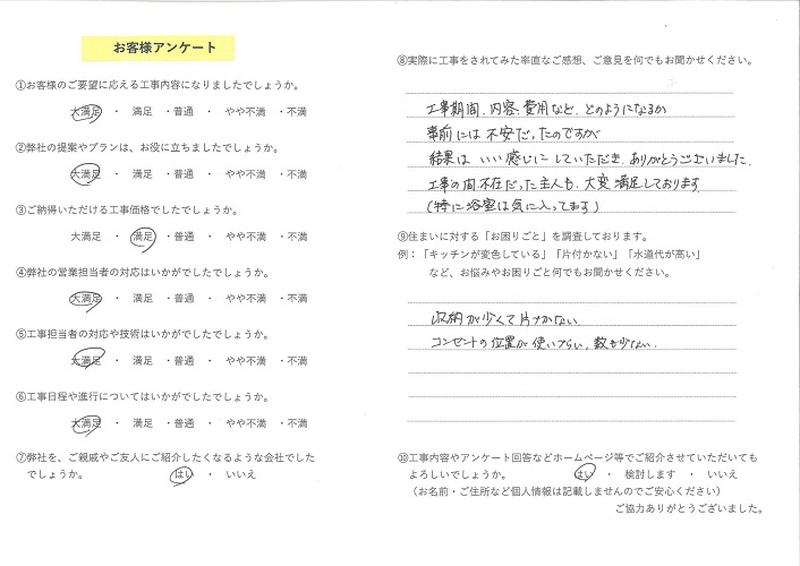 お客様アンケート
①お客様のご要望に応える工事内容になりましたでしょうか。
大満足 ・ 満足 ・普通 ・ やや不満 ・不満
②弊社の提案やプランは、お役に立ちましたでしょうか。
大満足 ・ 満足 ・普通 ・ やや不満 ・不満
③ご納得いただける工事価格でしたでしょうか。
大満足 ・ 満足 ・普通 ・ やや不満 ・不満
④弊社の営業担当者の対応はいかがでしたでしょうか。
大満足 ・ 満足 ・普通 ・ やや不満 ・不満
⑤工事担当者の対応や技術はいかがでしたでしょうか。
大満足 ・ 満足 ・普通 ・ やや不満 ・不満
⑥工事日程や進行についてはいかがでしたでしょうか。
大満足 ・ 満足 ・普通 ・ やや不満 ・不満
⑦弊社を、ご親戚やご友人にご紹介したくなるような会社でした
でしょうか。 はい ・ いいえ
⑧実際に工事をされてみた率直なご感想、ご意見を何でもお聞かせください。
工事期間、内容、費用など、どのようになるか
事前には不安だったのですが
結果は いい感じにしていただき、ありがとうございました。
工事の間、不在だった主人も、大変満足しております
(特に浴室は気に入ってます)
⑨住まいに対する「お困りごと」を調査しております。
例：「キッチンが変色している」「片付かない」「水道代が高い」
など、お悩みやお困りごと何でもお聞かせください。
収納が少くて片づかない。
コンセントの位置が使いづらい、数も少ない。
⑩工事内容やアンケート回答などホームページ等でご紹介させていただいても
よろしいでしょうか。 はい ・ 検討します ・ いいえ
（お名前・ご住所など個人情報は記載しませんのでご安心ください）
ご協力ありがとうございました。